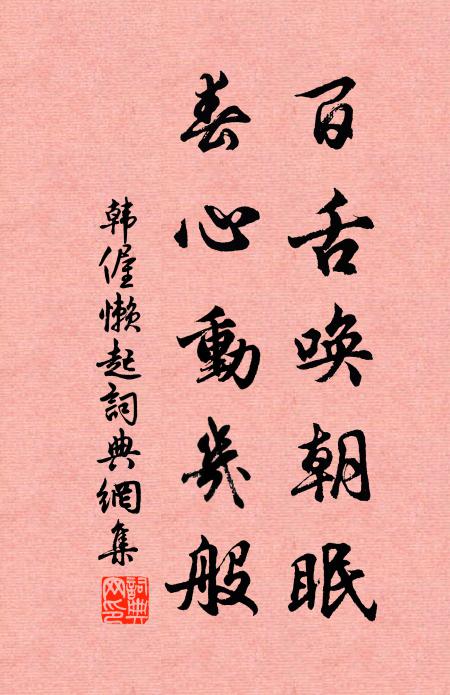 百舌唤朝眠
春心動几般
韩偓懒起詞典網集
詞典网印